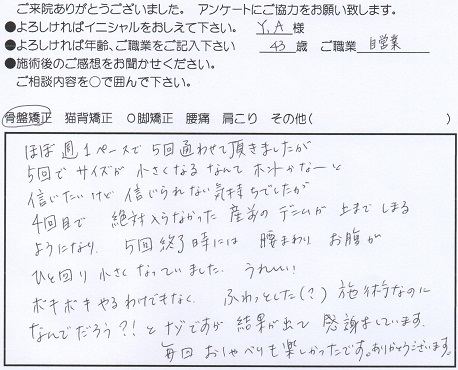 ご来院ありがとうございました。 アンケートにご協力をお願い致します。
●よろしければイニシャルをおしえて下さい。 Y.A 様
●よろしければ年齢、ご職業をご記入下さい 43 歳 ご職業 自営業
●施術後のご感想をお聞かせください。
ご相談内容を○で囲んで下さい。
骨盤矯正 猫背矯正 O脚矯正 腰痛 肩こり その他( )
ほぼ週1ペースで5回通わせて頂きましたが
5回でサイズが小さくなるなんてホントかなーと
信じたいけど信じられない気持ちでしたが
4回目で 絶対入らなかった産前のデニムが上までしまる
ようになり、5回終了時には 腰まわり お腹が
ひと回り小さくなっていました。うれしい!
ボキボキやるわけでもなく、ふわっとした(?)施術なのに
なんでだろう?!とナゾですが 結果が出て感謝しています。
毎回おしゃべりも楽しかったです。ありがとうございます。